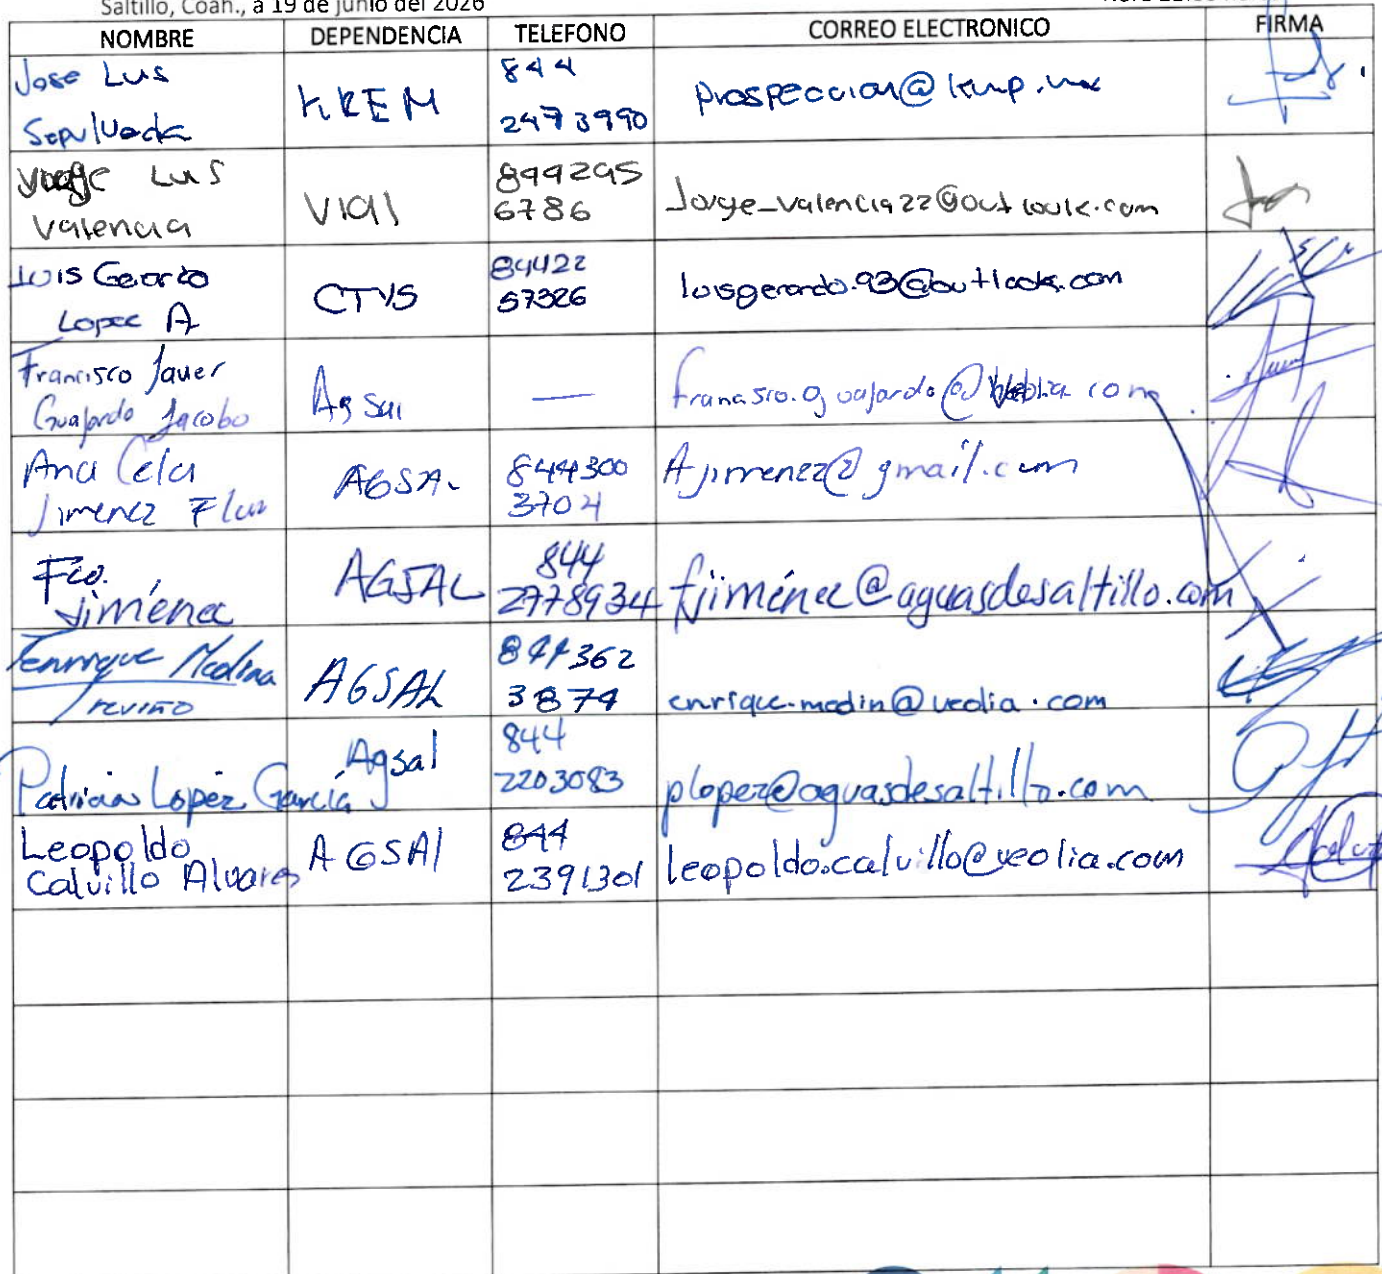 Saltillo, Coah., a 19 de junio del 2026
NOMBRE DEPENDENCIA TELEFONO CORREO ELECTRONICO FIRMA
Jose Luis
Sepulveda
KREM
844
2473990
prospeccion@
Jorge Luis
Valencia
Vial
844295
6786
Jorge_valencia22@outlook.com
Luis Gerardo
Lopez A
CTVS
84422
57326
luisgerardo.93@outlook.com
Francisco Javier
Guajardo Jacobo
Ag Sal
—
francisco.guajardo@veolia.com
Ana Celia
Jimenez Flor
AGSAL
844300
3704
Ajimenez@gmail.com
Fco.
Jiménez
AGSAL
844
2778934
fjiménez@aguasdesaltillo.com
Enrique Medina
Treviño
AGSAL
844362
3874
enrique.medin@veolia.com
Patricia Lopez García
Agsal
844
2203083
plopez@aguasdesaltillo.com
Leopoldo
Calvillo Alvares
AGSAl
844
2391301
leopoldo.calvillo@veolia.com